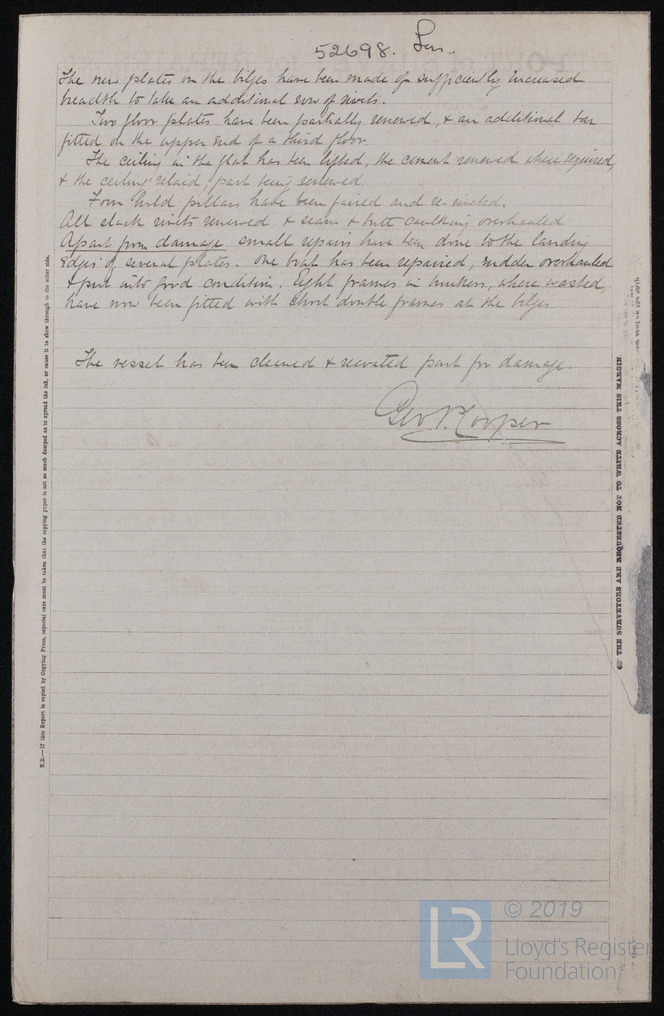 52698. Lon.
The new plates on the bilges have been made of sufficiently increased
breadth to take an additional row of rivets.
Two floor plates have been partially renewed, & an additional bar
fitted on the upper end of a third floor.
The ceiling in the flat has been lifted, the cement renewed where required,
& the ceiling relaid, part being renewed.
Four hold pillars have been faired and re-riveted.
All slack rivets renewed & seam & butt caulking overhauled
Apart from damage small repairs have been done to the landing
edges of several plates. One boat has been repaired, rudder overhauled
& put into good condition. Eight frames in bunkers, where wasted,
have now been fitted with short double frames at the bilges
The vessel has been cleaned & recoated part for damage.
Geo. P. Cooper
N.B.—If this Report is copied by Copying Press, especial care must be taken that the copying paper is not so much damped as to spread the ink, or cause it to show through to the other side.
THE SURVEYORS ARE REQUESTED NOT TO WRITE ACROSS THIS MARGIN.
LR
© 2019
Lloyd's Register
Foundation